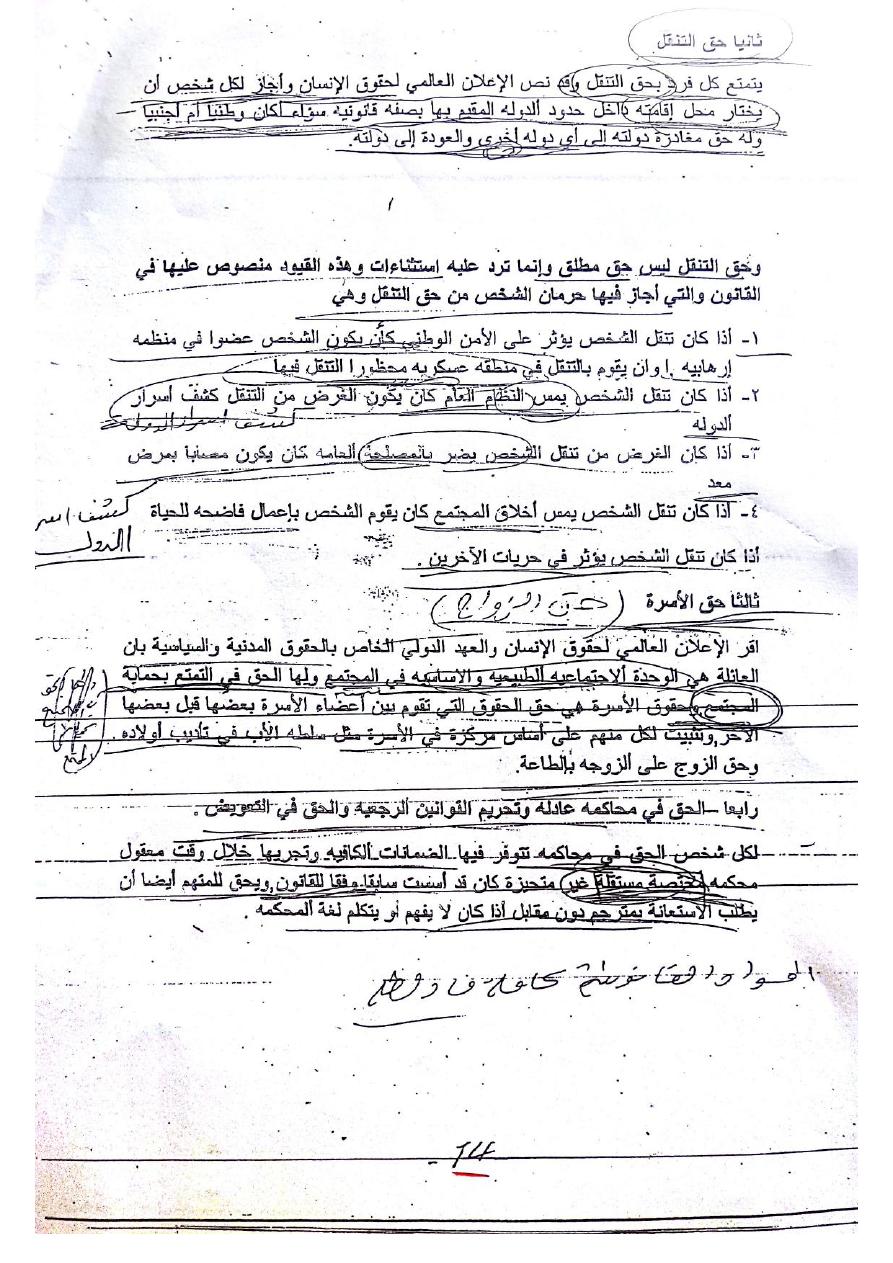 ثانيا حق التنقل
يتمتع كل فرد بحق التنقل وقد نص الإعلان العالمي لحقوق الإنسان وأجاز لكل شخص أن
يختار محل إقامته داخل حدود ألدوله المقيم بها بصفه قانونيه سواء أكان وطننا أم أجنبيا
وله حق مغادرة دولته إلى أي دوله أخرى والعودة إلى دولته.
وحق التنقل ليس حق مطلق وإنما ترد عليه استثناءات وهذه القيود منصوص عليها في
القانون والتي أجاز فيها حرمان الشخص من حق التنقل وهي
١- أذا كان تنقل الشخص يؤثر على الأمن الوطني كأن يكون الشخص عضوا في منظمه
إرهابيه اوان يقوم بالتنقل في منطقه عسكريه محظورا التنقل فيها
٢- أذا كان تنقل الشخص يمس النظام العام كان يكون الغرض من التنقل كشف أسرار
ألدوله كشف اسرار الدولة
٣- أذا كان الغرض من تنقل الشخص يضر بالمصلحة ألعامه كان يكون مصابا بمرض
معد
٤- أذا كان تنقل الشخص يمس أخلاق المجتمع كان يقوم الشخص بإعمال فاضحه للحياة
كشف اسر
الدول
أذا كان تنقل الشخص يؤثر في حريات الآخرين .
ثالثا حق الأسرة (حق الزواج)
اقر الإعلان العالمي لحقوق الإنسان والعهد الدولي الخاص بالحقوق المدنية والسياسية بان
العائلة هي الوحدة ألاجتماعيه الطبيعيه والاساسيه في المجتمع ولها الحق في التمتع بحماية
المجتمع وحقوق الأسرة هي حق الحقوق التي تقوم بين أعضاء الأسرة بعضها قبل بعضها
الآخر وبثبيت لكل منهم على أساس مركزة في الأسرة مثل سلطه الأب في تأديب أولاده .
وحق الزوج على الزوجه بالطاعة.
رابعا –الحق في محاكمه عادله وتحريم القوانين الرجعيه والحق في التعويض .
لكل شخص الحق في محاكمه تتوفر فيها الضمانات ألكافيه وتجريها خلال وقت معقول
محكمه مختصة مستقلة غير متحيزة كان قد أسست سابقا وفقا للقانون ويحق للمتهم أيضا أن
يطلب الاستعانة بمترجم دون مقابل أذا كان لا يفهم أو يتكلم لغة ألمحكمه .
14